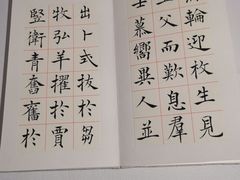 輪迎枚生見
主父而歎息羣
士慕嚮異人並
出卜式拔於芻
牧弘羊擢於賈
竪衛青奮奮於